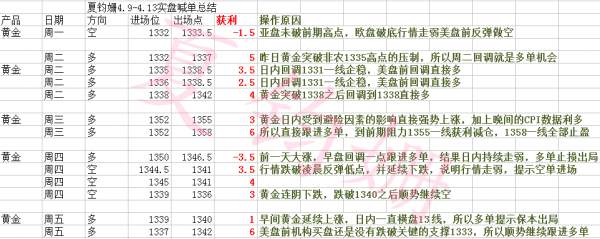 夏钧姗4.9-4.13实盘喊单总结
产品 日期 方向 进场位 出场点 获利 操作原因
黄金 周一 空 1332 1333.5 -1.5 亚盘未破前期高点，欧盘破底行情走弱美盘前反弹做空
周二 多 1332 1337 5 昨日黄金突破非农1335高点的压制，所以周二回调就是多单机会
黄金 周二 多 1335 1338.5 3.5 日内回调1331一线企稳，美盘前回调直接多
周二 多 1336 1338.5 2.5 日内回调1331一线企稳，美盘前回调直接多
周二 多 1338 1342 4 黄金突破1338之后回调到1338直接多
黄金 周三 多 1352 1355 3 黄金日内受到避险因素的影响直接强势上涨，加上晚间的CPI数据利多
周三 多 1352 1358 6 所以直接跟进多单，到前期阻力1355一线获利减仓，1358一线全部止盈
黄金 周四 多 1350 1346.5 -3.5 前一天大涨，早盘回调一点跟进多单，结果日内持续走弱，多单止损出局
周四 空 1344.5 1341 3.5 行情跌破凌晨反弹低点，并延续下跌，说明行情走弱，提示空单进场
周四 空 1345 1341 4
周四 空 1339 1336 3 黄金连阴下跌，跌破1340之后顺势继续空
黄金 周五 多 1339 1340 1 早间黄金延续上涨，日内一直横盘13线，所以多单提示保本出局
周五 多 1337 1342 6 美盘前机构买盘还是没有跌破关键的支撑1333，所以顺势继续跟多单
夏钧姗